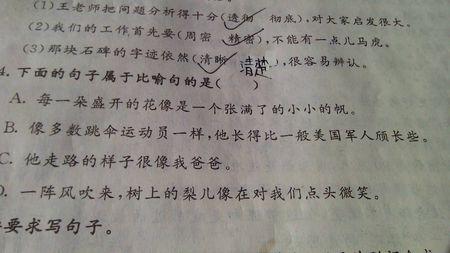 (1)王老师把问题分析得十分(透彻 彻底),对大家启发很大。
(2)我们的工作首先要(周密 精密),不能有一点儿马虎。
(3)那块石碑的字迹依然(清晰 清楚),很容易辨认。
4.下面的句子属于比喻句的是( )
A. 每一朵盛开的花像是一个张满了的小小的帆。
B. 像多数跳伞运动员一样,他长得比一般美国军人颀长些。
C. 他走路的样子很像我爸爸。
D. 一阵风吹来,树上的梨儿像在对我们点头微笑。
要求写句子。